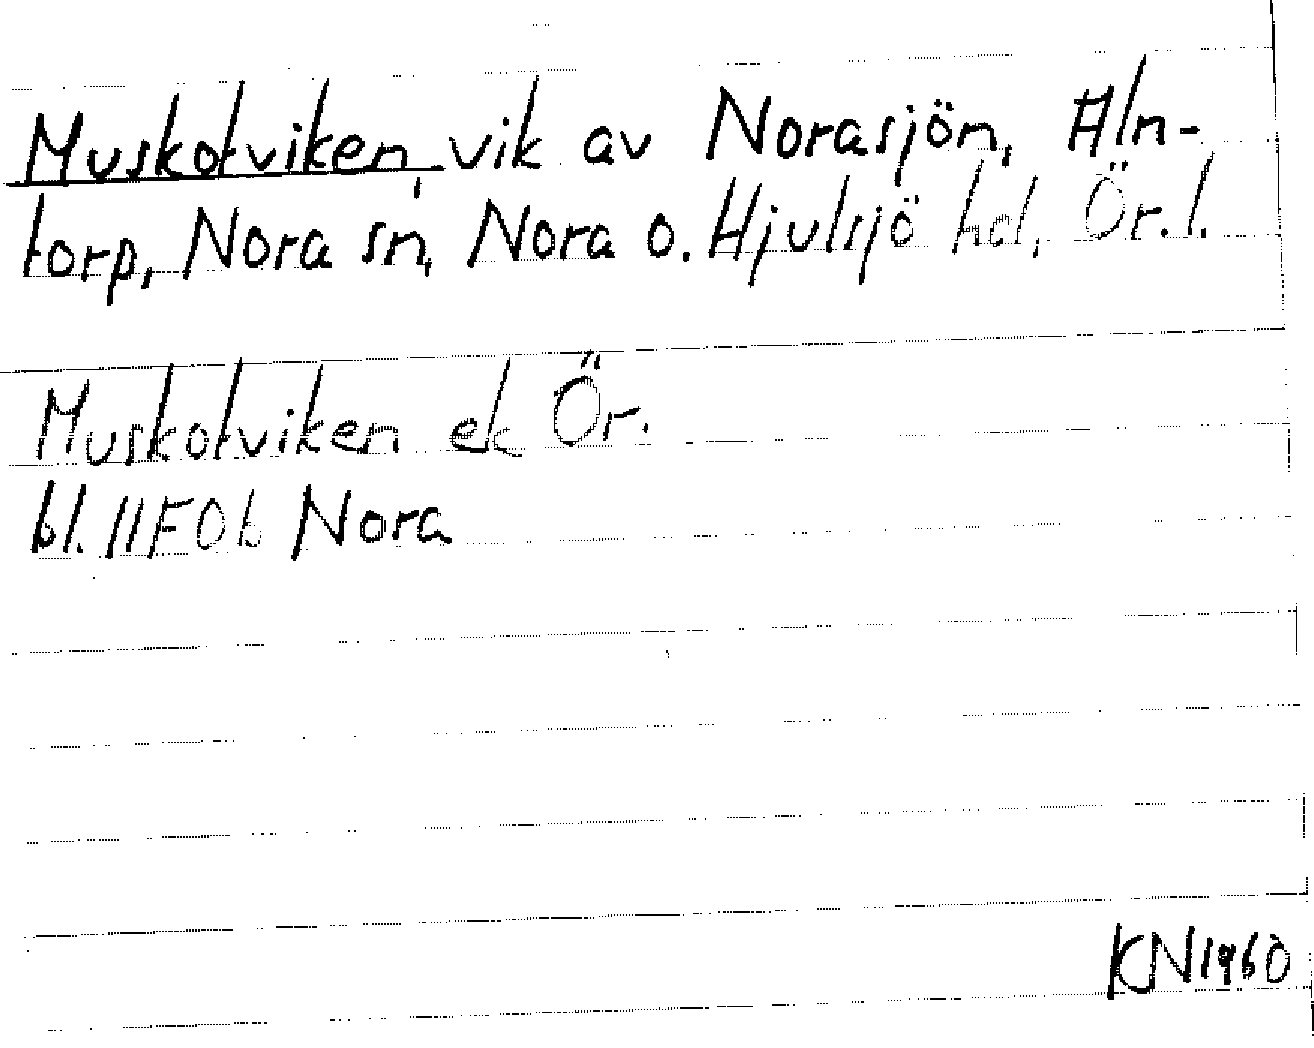 Muskotviken, vik av Norasjön, Aln-
torp, Nora sn, Nora o. Hjulsjö hd, Ör. l.
Muskotviken ek Ör.
bl. 11F0b Nora
KN1960